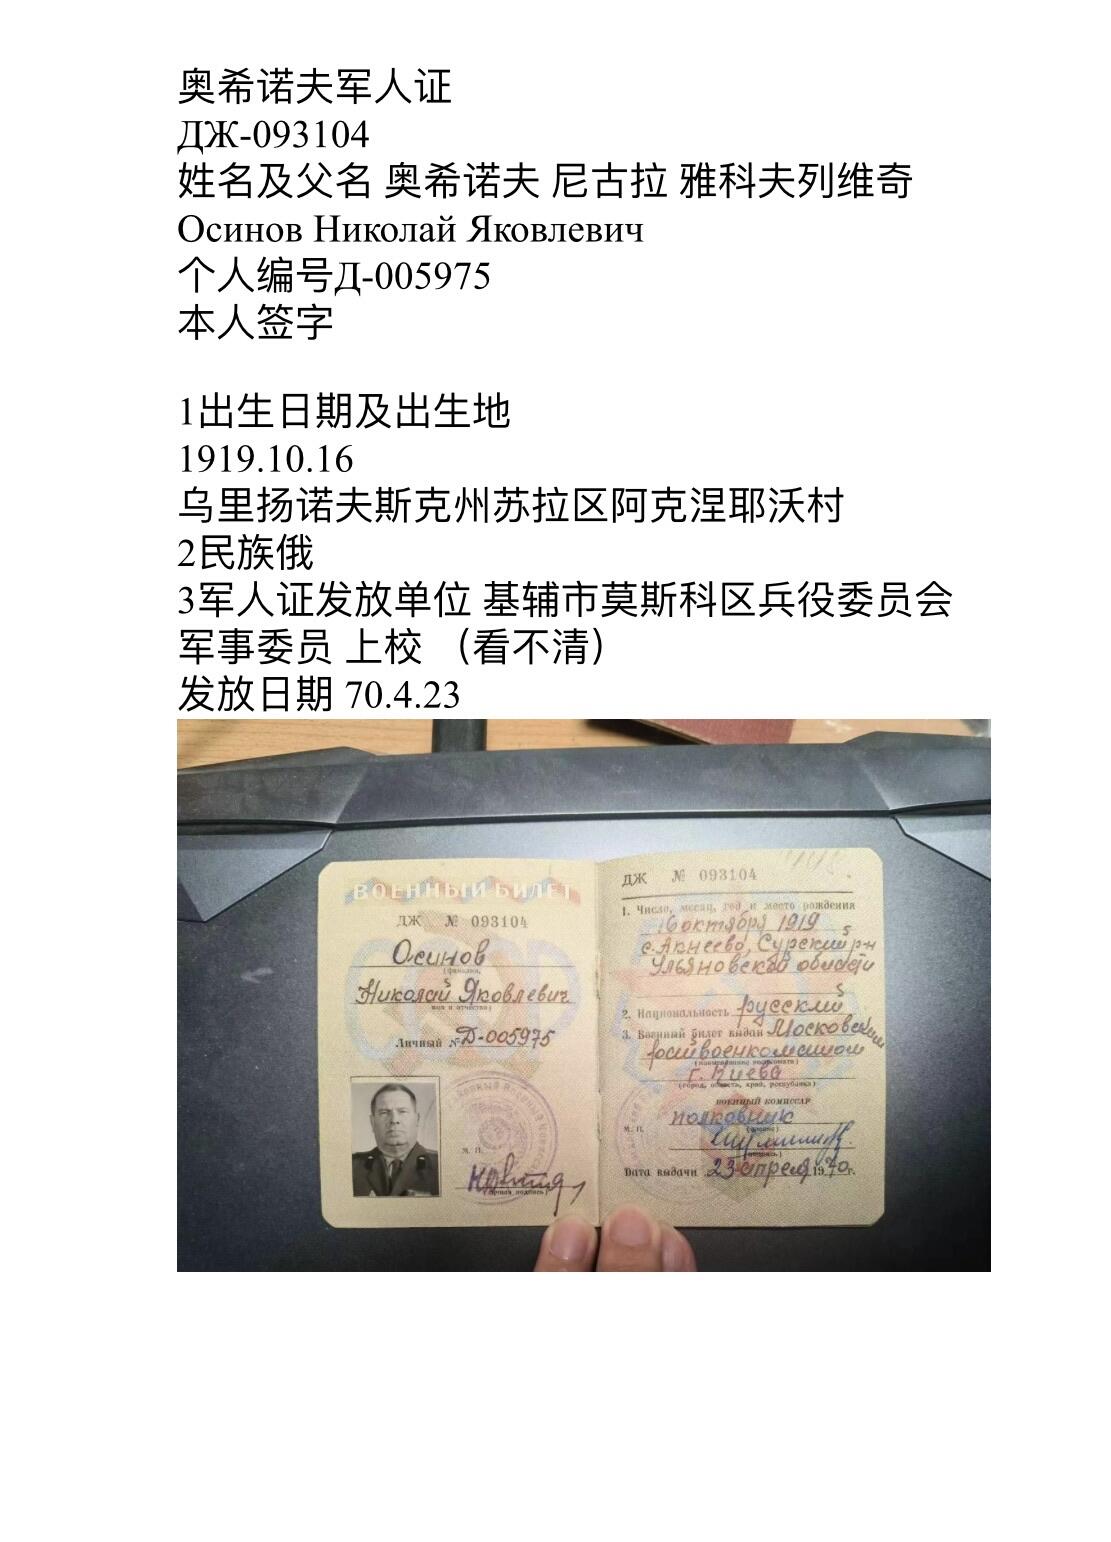 奥希诺夫军人证
ДЖ-093104
姓名及父名 奥希诺夫 尼古拉 雅科夫列维奇
Осинов Николай Яковлевич
个人编号Д-005975
本人签字
1出生日期及出生地
1919.10.16
乌里扬诺夫斯克州苏拉区阿克涅耶沃村
2民族俄
3军人证发放单位 基辅市莫斯科区兵役委员会
军事委员 上校 （看不清）
发放日期 70.4.23
ВОЕННЫЙ БИЛЕТ
ДЖ № 093104
Осинов
(фамилия,
Николай Яковлевич
имя и отчество)
Личный № Д-005975
М. П.
(личная подпись)
ДЖ № 093104
1. Число, месяц, год и место рождения
октября 1919
с. Акнеево, Сурский р-н
Ульяновской области
2. Национальность русский
3. Военный билет выдан Московским
райвоенкоматом
(наименование военкомата)
г. Киева
(город, область, край, республика)
ВОЕННЫЙ КОМИССАР
М. П. полковник
(звание)
(подпись)
Дата выдачи 23 апреля 1970 г.